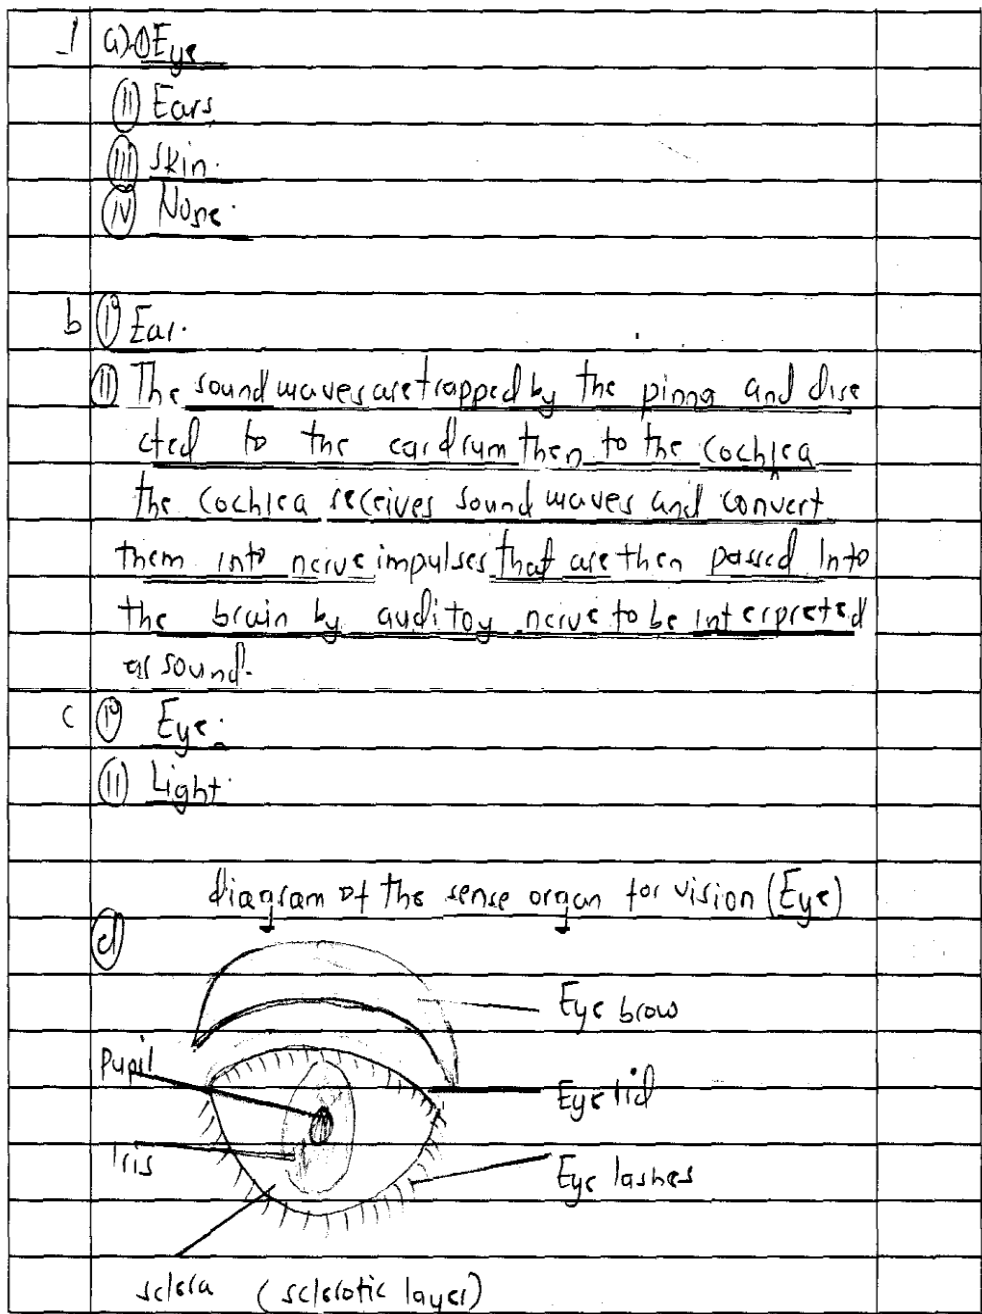 1 a) (i) Eye
(ii) Ears
(iii) skin.
(iv) Nose.
b (i) Ear.
(ii) The sound waves are trapped by the pinna and dire
cted to the eardrum then to the cochlea
the cochlea receives sound waves and convert
them into nerve impulses that are then passed into
the brain by auditoy nerve to be interpreted
as sound.
c (i) Eye.
(ii) Light.
diagram of the sense organ for vision (Eye)
d)
Eye brow
Pupil
Eye lid
Iris
Eye lashes
sclera (sclerotic layer)